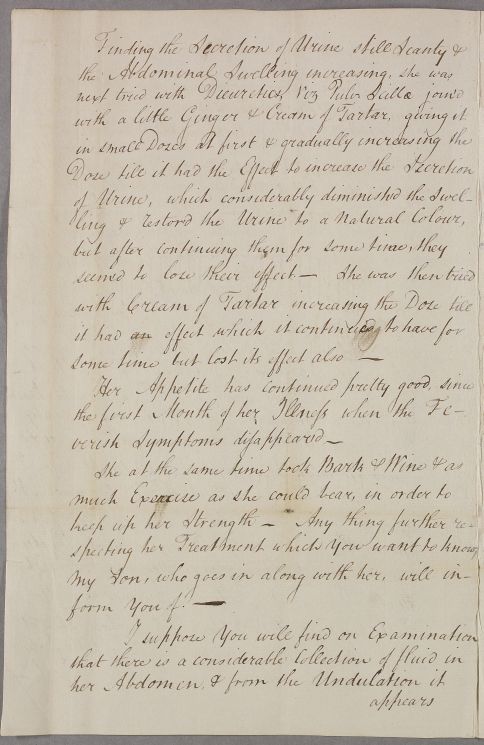 Finding the Secretion of Urine still Scanty &
the Abdominal Swelling increasing, she was
next tried with Dieuretics, Viz Pulv: Scillæ joind
with a little Ginger & Cream of Tartar, giving it
in small Doses at first & gradually increasing the
Dose till it had the Effect to increase the Secretion
of Urine, which considerably diminishd the Swel-
ling & restord the Urine to a Natural Colour,
but after continuing them for some time, they
seemd to lose their effect — She was then tried
with Cream of Tartar increasing the Dose till
it had an effect which it continued to have for
some time but lost its effect also —
Her Appetite has continued pretty good, since
the first Month of her Illness when the Fe-
verish Symptoms disappeared —
She at the same time took Bark & Wine & as
much Exercise as she could bear, in order to
keep up her Strength — Any thing further re-
specting her Treatment which you want to know,
my Son, who goes in along with her, will in-
form you of. —
I suppose you will find on Examination
that there is a considerable Collection of fluid in
her Abdomen, & from the Undulation it
appears